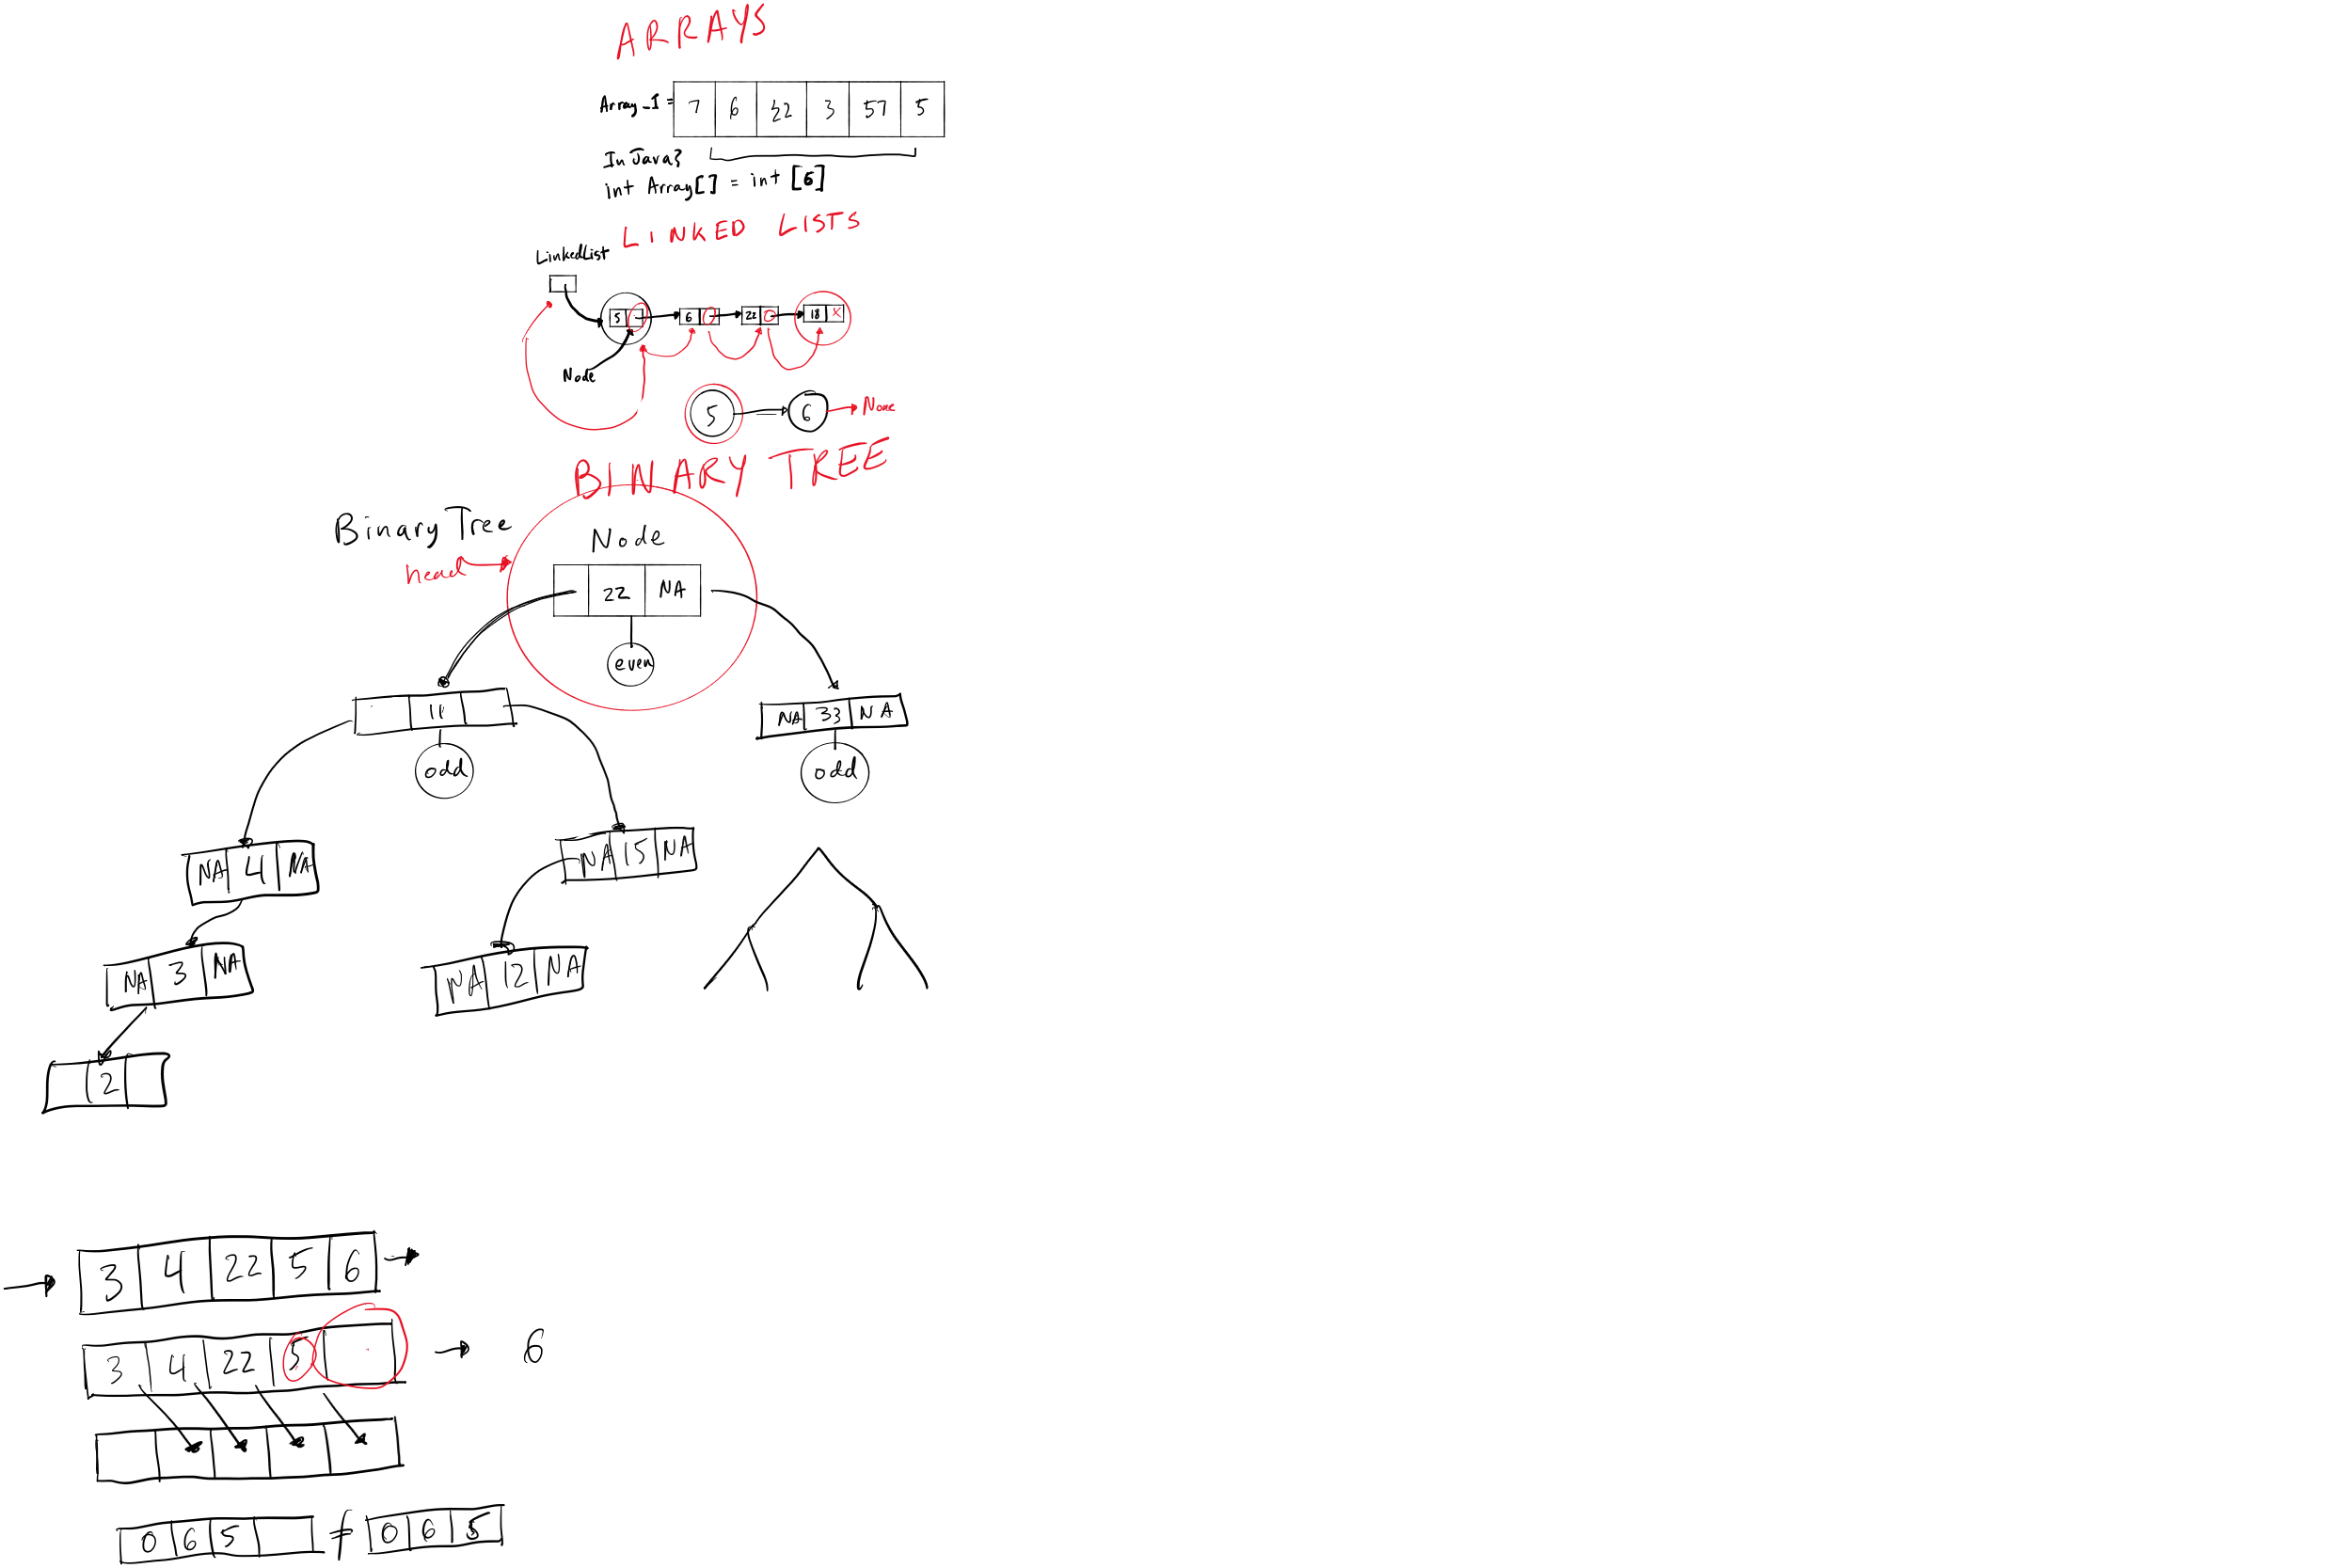 ARRAYS
Array_1 = 7 6 22 3 57 5
In Java}
int Array[] = int [6]
LINKED LISTS
LinkedList
5 6 22 18 X
Node
5 6 None
BINARY TREE
Binary Tree
Node
head
22 NA
even
11
NA 33 NA
odd odd
NA 4 NA
NA 15 NA
NA 3 NA
NA 12 NA
2
3 4 22 5 6
3 4 22 5 6
0 6 5 ≠ 0 6 5